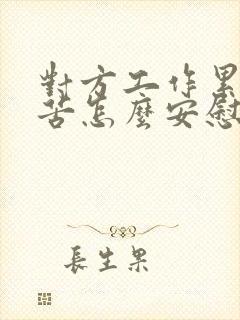 對方工作累
苦怎麼安慰
長生果